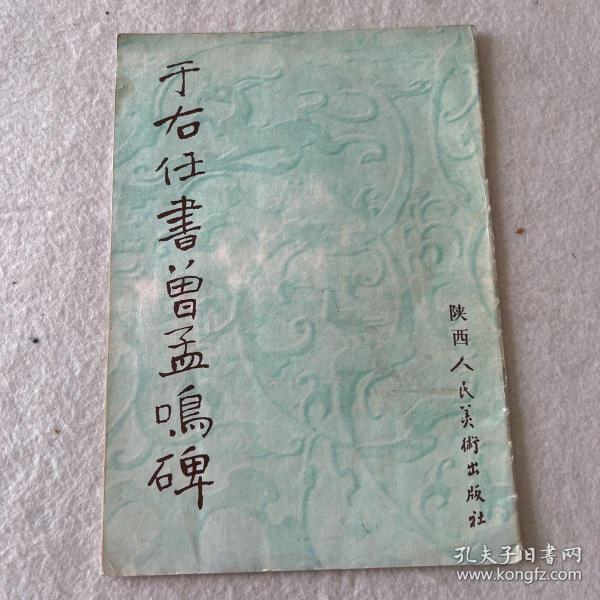 于右任書曾孟鳴碑
陕西人民美術出版社
孔夫子旧書网
www.kongfz.com